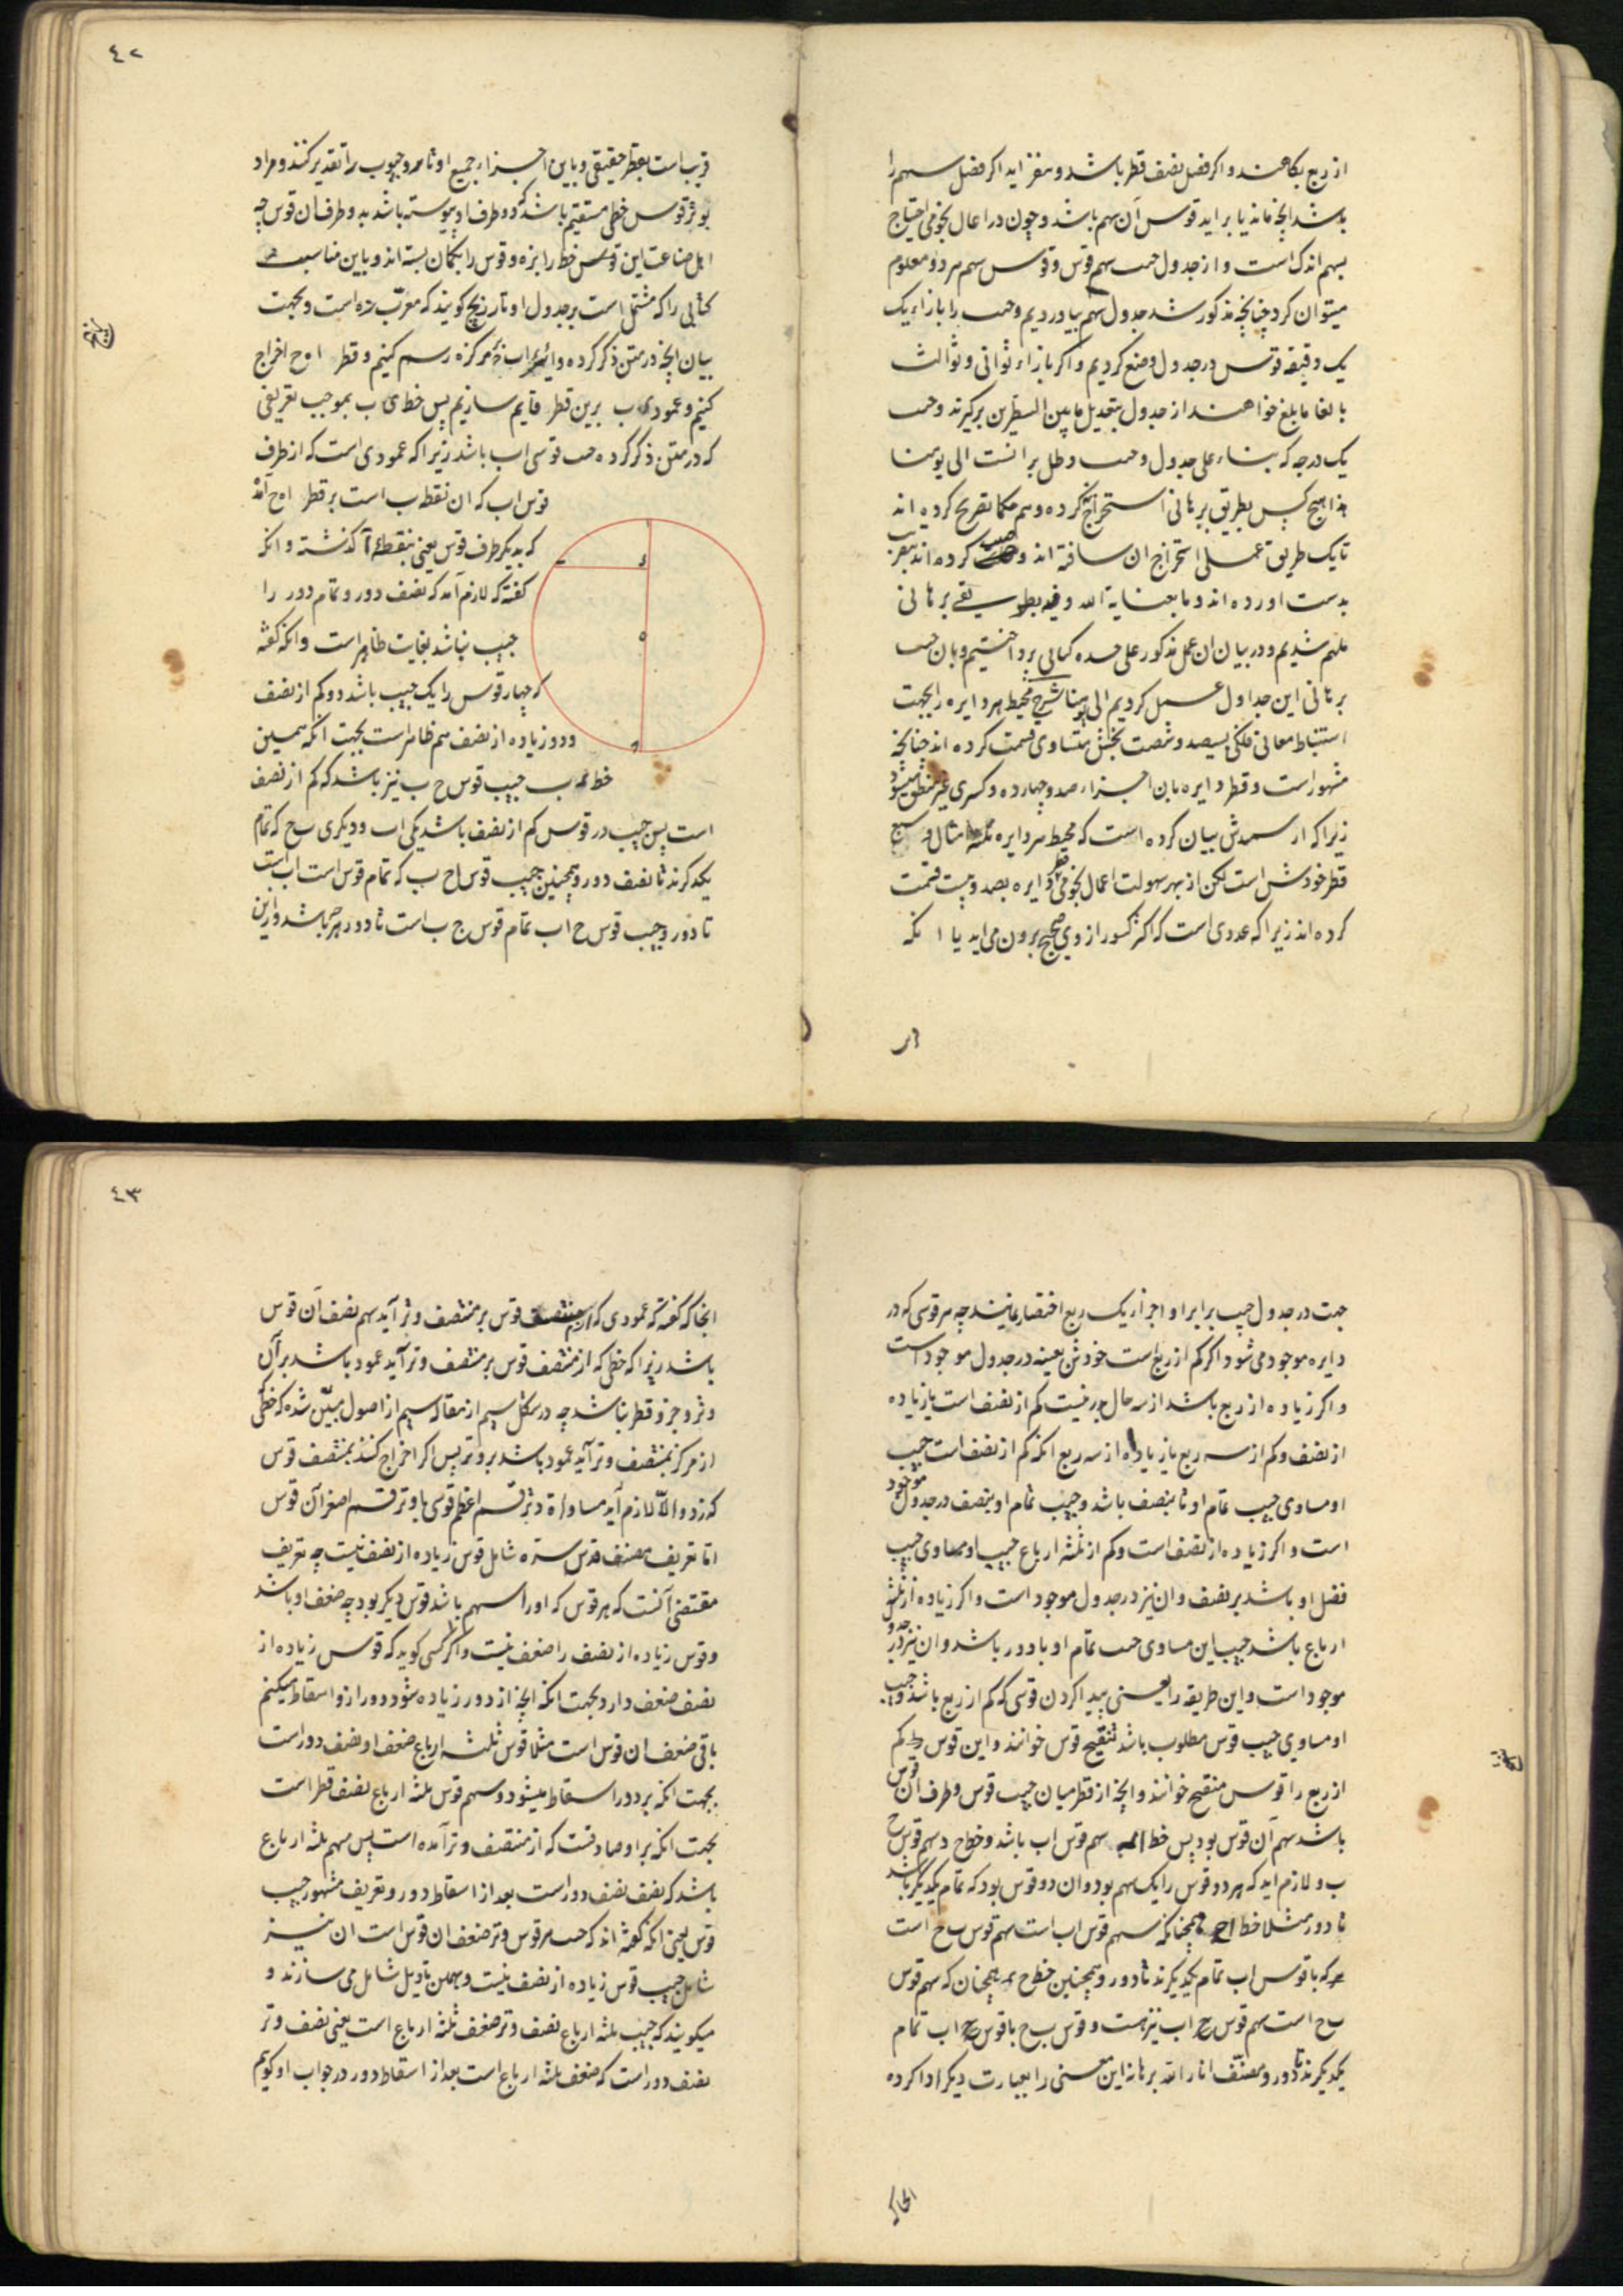 از ربع بکاهند و اکر فضل نصف قطر باشد و بیفزاید اکر فضل سهم را
باشد انچه ماند یا براید قوس آن سهم باشد و چون در اعمال نجومی احتیاج
بسهم اندک است و از جدول جیب سهم قوس و قوس سهم هر دو معلوم
میتوان کرد چنانچه مذکور شد جدول سهم نیاوردیم و جیب را بازاء یک
یک دقیقه قوس در جدول وضع کردیم و اکر بازاء ثوانی و ثوالث
بالغا ما بلغ خواهند از جدول بتعدیل ما بین السطرین برکیرند و جیب
یک درجه که بناء علی جدول و جیب و ظل برانست الی یومنا
هذا هیچ کس بطریق برهانی استخراج نکرده و هم حکما تصریح کرده اند
تا یک طریق عملی استخراج ان ساخته اند و جیب کرده اند بتقریب
بدست اورده اند و ما بعنایة الله وفیه بطریقی برهانی
ملهم شدیم و در بیان ان عمل مذکور علی حده کتابی پرداختیم و بان جیب
برهانی این جداول عمل کردیم الی یومنا شرح محیط هر دایره را بجهت
استنباط معانی فلکی بسیصد و شصت بخش متساوی قسمت کرده اند چنانچه
مشهور است و قطر دایره بان اجزاء صد و چهارده و کسری غیر منطق میشود
زیرا که ارسمیدش بیان کرده است که محیط هر دایره ثلثه امثال و سبع
قطر خودش است لکن از بهر سهولت اعمال نجومی قطر دایره بصد و بیست قسمت
کرده اند زیرا که عددی است که اکثر کسور از وی صحیح برون می اید یا انکه
٤٢
قریب است بقطر حقیقی و باین اجزاء جمیع اوتار و جیوب را تقدیر کنند و مراد
بوتر قوس خطی مستقیم باشد که دو طرف او پیوسته باشد بدو طرف ان قوس چه
اهل صناعت این قوس خط را بزه و قوس را بکمان بسته اند و باین مناسبت
کتابی را که مشتمل است بر جدول اوتار زیج کویند که معرّب زه است و بجهت
بیان انچه در متن ذکر کرده دایره اب ح بر مرکز ه رسم کنیم و قطر ا ه ح اخراج
کنیم و عمود ی ب برین قطر قایم سازیم پس خط ی ب بموجب تعریفی
که در متن ذکر کرده جیب قوس اب باشد زیرا که عمودی است که از طرف
قوس اب که ان نقطه ب است بر قطر ا ه ح آمده
که بدیکر طرف قوس یعنی بنقطه آ کذشته و انکه
کفته که لازم آمد که نصف دور و تمام دور را
جیب نباشد بغایت ظاهر است و انکه کفته
که چهار قوس را یک جیب باشد دو کم از نصف
و دو زیاده از نصف هم ظاهر است بجهت انکه همین
خط ی ب جیب قوس ح ب نیز باشد که کم از نصف
است پس جیب دو قوس کم از نصف باشد یکی اب و دیکری ب ح که تمام
یکدکرند تا نصف دور و همچنین جیب قوس ا ح ب که تمام قوس است اب است
تا دور و جیب قوس ح اب تمام قوس ح ب است تا دور هم باشد و ازین
ا
ب
ی
ه
ح
جهت در جدول جیب برابر او اجزاء یک ربع اختصار نمایند چه هر قوسی که در
دایره موجود می شود اکر کم از ربع است خودش بعینه در جدول موجود است
و اکر زیاده از ربع باشد از سه حال بدر نیست کم از نصف است یا زیاده
از نصف و کم از سه ربع یا زیاده از سه ربع انکه کم از نصف است جیب
او مساوی جیب تمام او تا بنصف باشد و جیب تمام او بنصف در جدول موجود
است و اکر زیاده از نصف است و کم از ثلثه ارباع جیب او مساوی جیب
فضل او باشد بر نصف و ان نیز در جدول موجود است و اکر زیاده از ثلثه
ارباع باشد جیب این مساوی جیب تمام او با دور باشد و ان نیز در جدول
موجود است و این طریقه را یعنی پیدا کردن قوسی که کم از ربع باشد و جیب
او مساوی جیب قوس مطلوب باشد تنقیح قوس خوانند و این قوس که کم
از ربع را قوس منقح خوانند و انچه از قطر میان جیب قوس و طرف ان قوس
باشد سهم آن قوس بود پس خط ا ی سهم قوس اب باشد و خط ح ی سهم قوس ح
ب و لازم اید که هر دو قوس را یک سهم بود و ان دو قوس بود که تمام یکدیکر باشند
تا دور مثلا خط ا ی همچنانکه سهم قوس اب است سهم قوس ب ح است
که با قوس اب تمام یکدیکرند تا دور و همچنین خط ح ی همچنان که سهم قوس
ب ح است سهم قوس ح اب نیز هست و قوس ب ح با قوس ح اب تمام
یکدیکرند تا دور و مصنّف انار الله برهانه این معنی را بعبارت دیکر ادا کرده
انجا که
٤٣
انجا که کفته که عمودی که از منتصف قوس بر منتصف وتر آید سهم نصف آن قوس
باشد زیرا که خطی که از منتصف قوس بر منتصف وتر آید عمود باشد بر آن
وتر و جزو قطر باشد چه در شکل سیم از مقاله سیم از اصول مبیّن شده که خطی
از مرکز بمنتصف وتر آید عمود باشد بر وتر پس اکر اخراج کنند بمنتصف قوس
که رد و الّا لازم آید مساواة وتر قسم اعظم قوسی با وتر قسم اصغر آن قوس
اما تعریف مصنف قدس سره شامل قوس زیاده از نصف نیست چه تعریف
مقتضی آنست که هر قوس که او را سهم باشد قوس دیکر بود چه ضعف او باشد
و قوس زیاده از نصف را ضعف نیست و اکر کسی کوید که قوس زیاده از
نصف ضعف دارد بجهت انکه انچه از دور زیاده شود دور ازو اسقاط میکنیم
باقی ضعف ان قوس است مثلا قوس ثلثه ارباع ضعف او نصف دور است
بجهت انکه بر دور اسقاط میشود و سهم قوس ثلثه ارباع نصف قطر است
بجهت انکه بر او صادقست که از منتصف وتر آمده است پس سهم ثلثه ارباع
باشد که نصف نصف دور است بعد از اسقاط دور و تعریف مشهور جیب
قوس یعنی انکه کفته اند که جیب هر قوس وتر ضعف ان قوس است ان نیز
شامل جیب قوس زیاده از نصف نیست و بهمین تاویل شامل می سازند و
میکویند که جیب ثلثه ارباع نصف وتر ضعف ثلثه ارباع است یعنی نصف وتر
نصف دور است که ضعف ثلثه ارباع است بعد از اسقاط دور در جواب او کوییم